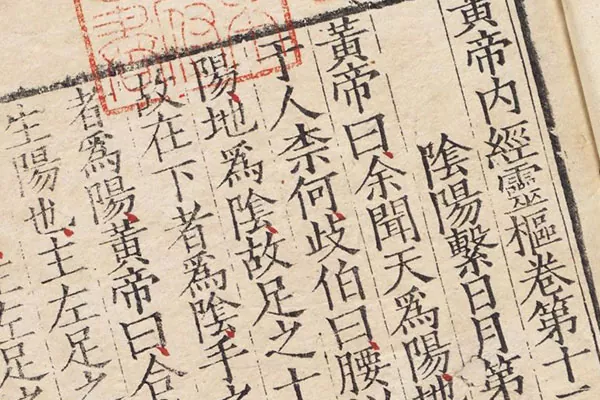 黃帝內經靈樞卷第十
陰陽繫日月第
黃帝曰余聞天為陽地
于人柰何歧伯曰腰
陽地為陰故足之十
故在下者為陰手之
者為陽黃帝曰合
生陽也主左足之
左足